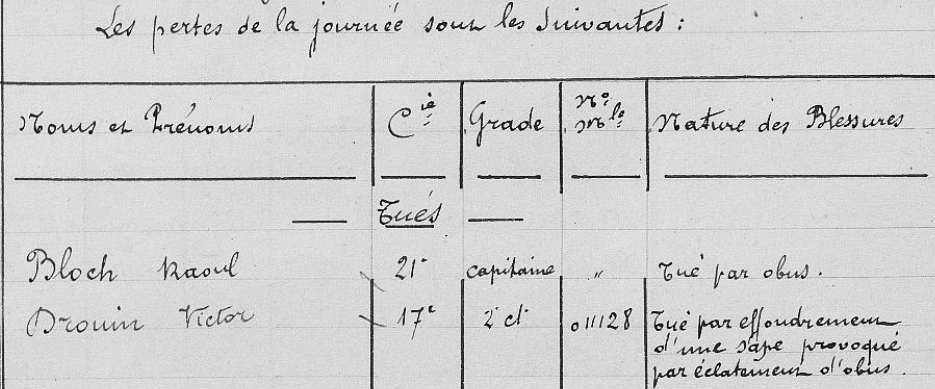 Les pertes de la journée sont les suivantes :
Noms et Prénoms Cie Grade No Mle Nature des Blessures
Tués
Bloch Raoul 21e capitaine " Tué par obus.
Drouin Victor 17e 2e cl. 011128 Tué par effondrement
d'une sape provoqué
par éclatement d'obus.